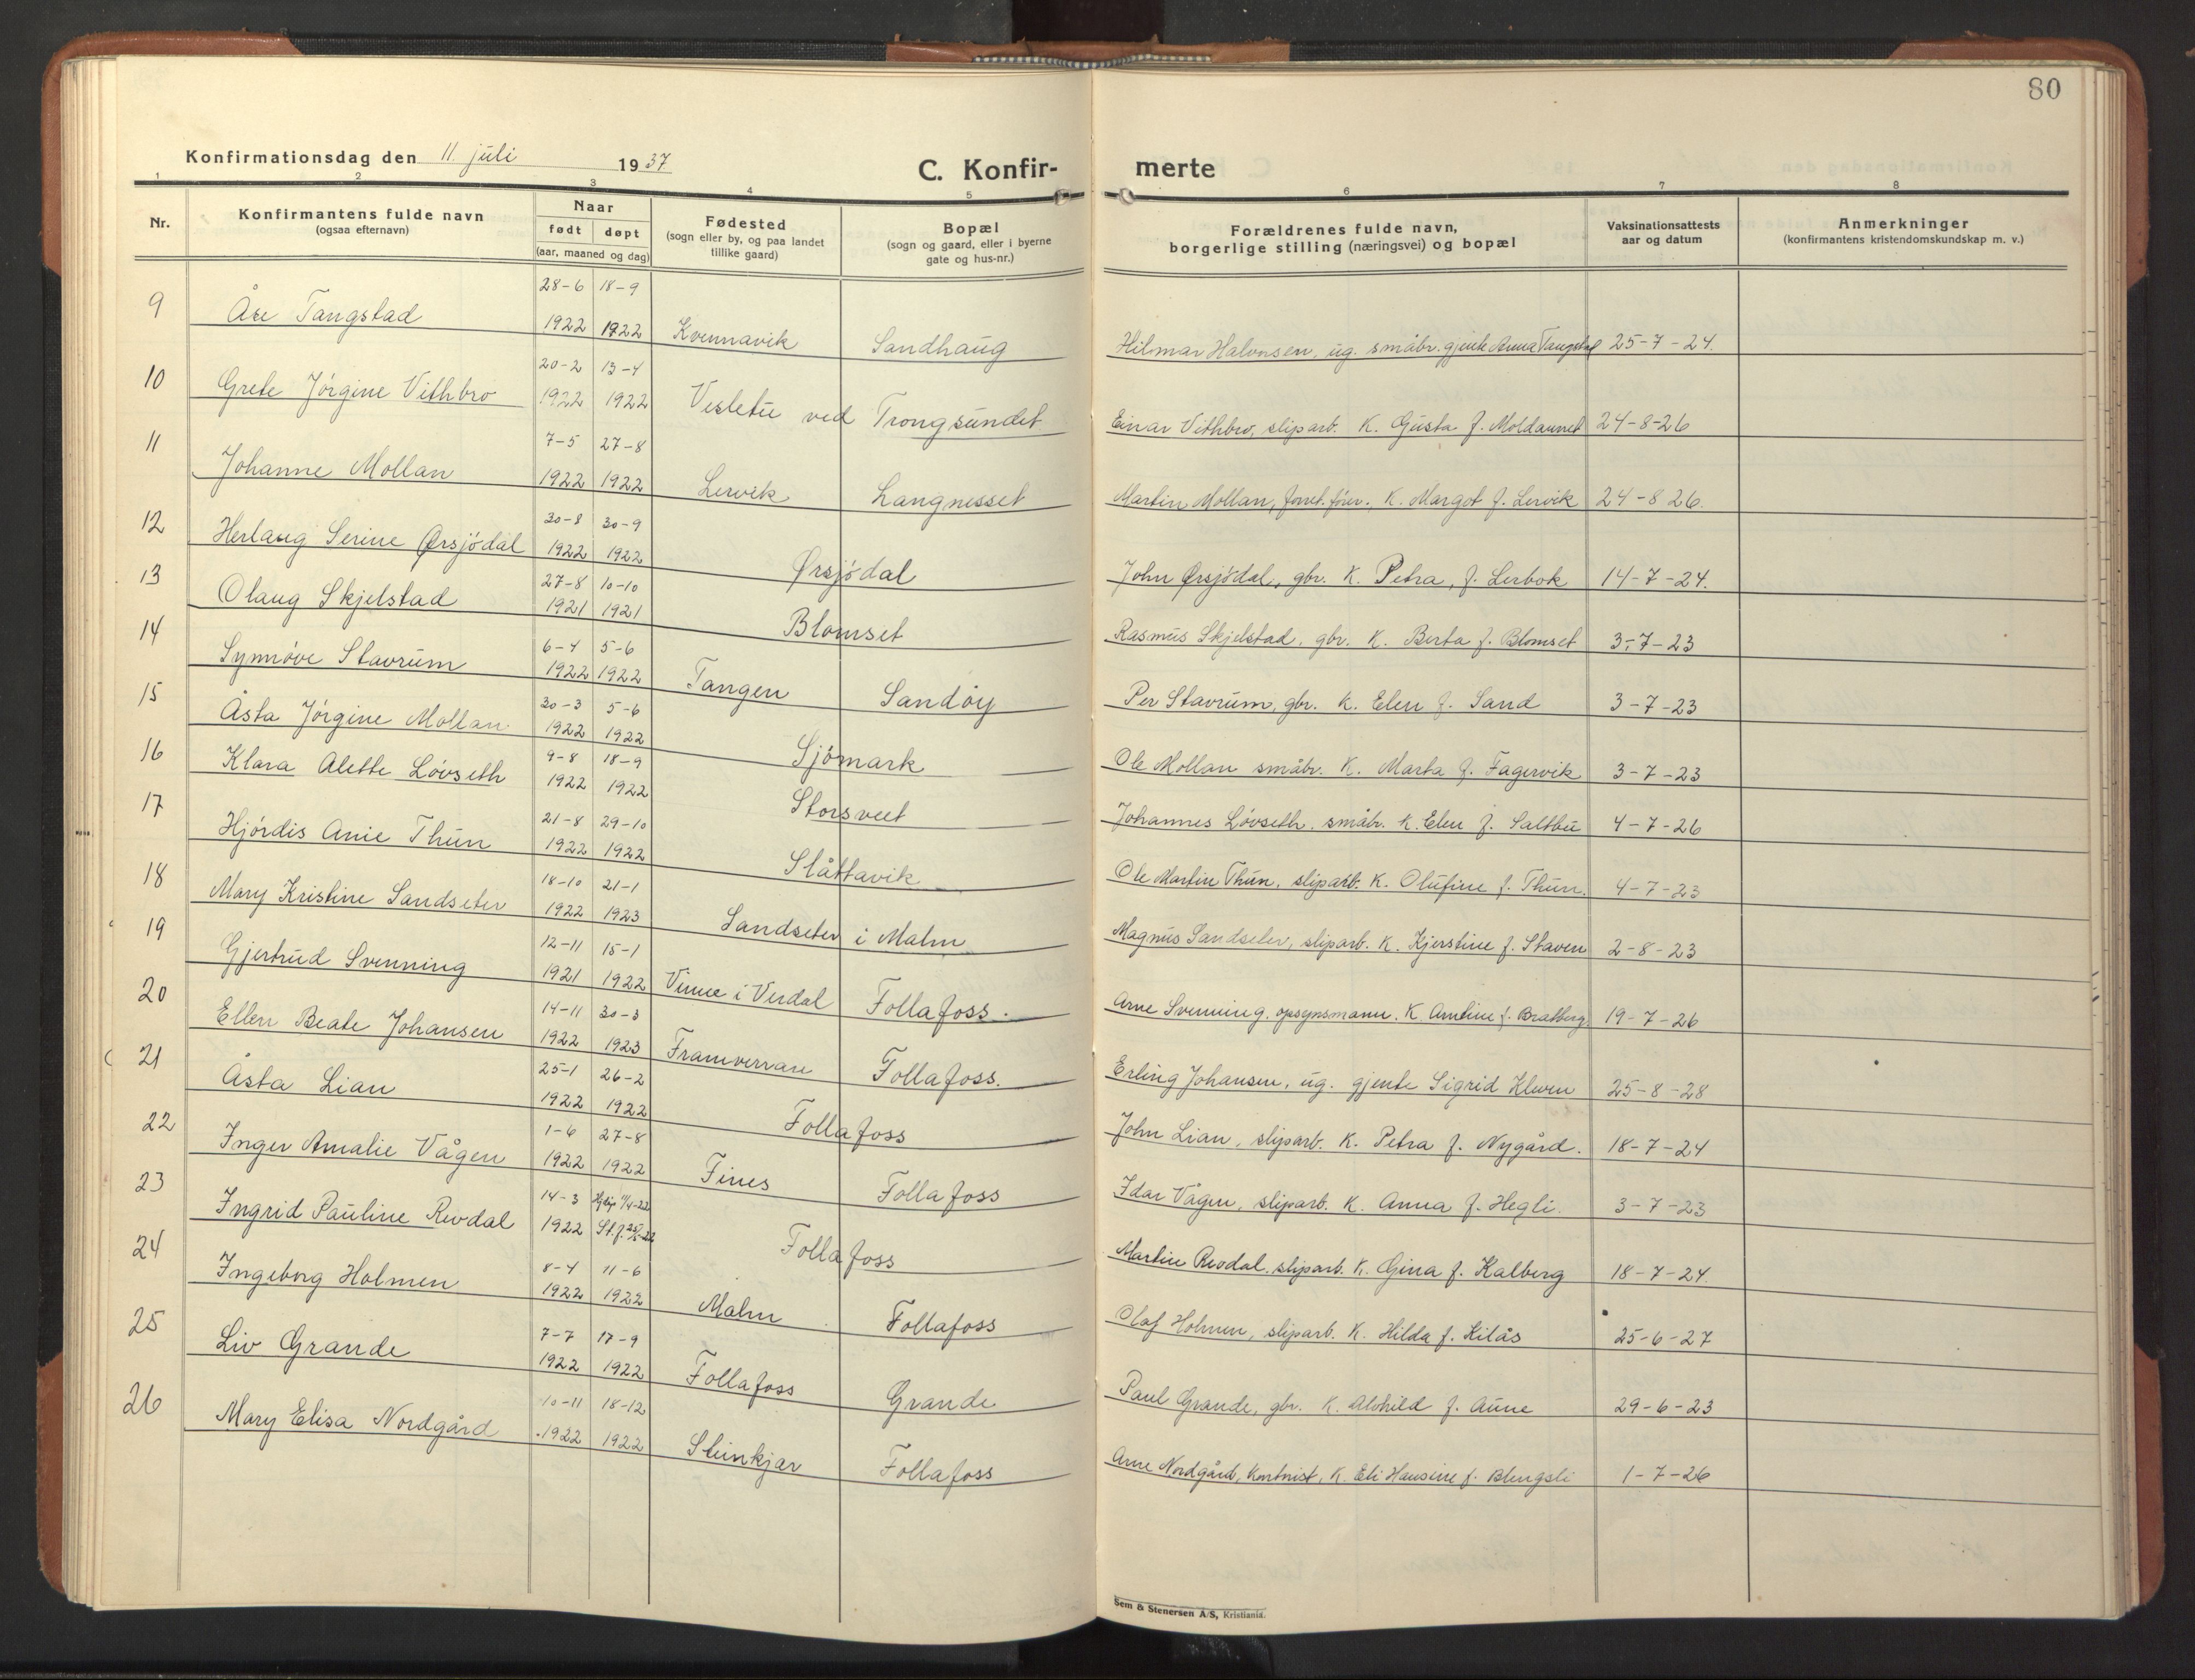 80
Konfirmationsdag den 11. juli 1937
C. Konfir-
merte
1 2 3 4 5 6 7 8
Nr.
Konfirmantens fulde navn
(ogsaa efternavn)
Naar
født døpt
(aar, maaned og dag)
Fødested
(sogn eller by, og paa landet
tillike gaard)
Bopæl
(sogn og gaard, eller i byerne
gate og hus-nr.)
Forældrenes fulde navn,
borgerlige stilling (næringsvei) og bopæl
Vaksinationsattests
aar og datum
Anmerkninger
(konfirmantens kristendomskundskap m. v.)
9 Åse Tangstad 28-6 1922 18-9 1922 Kvennavik Sandhaug Hilmar Halvorsen, ug. småbr. gjente Anna Tangstad 25-7-24.
10 Grete Jörgine Vithbro 20-2 1922 13-4 1922 Vesletu ved Trongsundet Einar Vithbro, sliparb. K. Gusta f. Moldaunet 24-8-26
11 Johanne Mollan 7-5 1922 27-8 1922 Lervik Langnesset Martin Mollan, forret.förer. K. Margot f. Lervik 24-8 26.
12 Herlaug Serine Ørsjödal 30-8 1922 30-9 1922 Ørsjödal John Ørsjödal, gbr. K. Petra, f. Lerbok 14-7-24.
13 Olaug Skjelstad 27-8 1921 10-10 1921 Blomset Rasmus Skjelstad, gbr. K. Berta f. Blomset 3-7-23
14 Synnöve Stavrum 6-4 1922 5-6 1922 Tangen Sandöy Per Stavrum, gbr. K. Elen f. Sand 3-7-23
15 Åsta Jörgine Mollan 20-3 1922 5-6 1922 Sjömark Ole Mollan småbr. K. Marta f. Fagervik 3-7-23
16 Klara Alette Lövseth 9-8 1922 18-9 1922 Storsveet Johannes Lövseth. småbr. K. Elen f. Saltbu 4-7-26
17 Hjördis Anie Thun 21-8 1922 29-10 1922 Slåttavik Ole Martin Thun, sliparb. K. Olufine f. Thun. 4-7-23
18 Mary Kristine Sandseter 18-10 1922 21-1 1923 Sandseter i Malm Magnus Sandseter, sliparb. K. Kjerstine f. Staven 2-8-23
19 Gjertrud Svenning 12-11 1921 15-1 1922 Vinne i Verdal Follafoss. Arne Svenning. opsynsmann. K. Arntine f. Bratberg. 19-7-26
20 Ellen Beate Johansen 14-11 1922 30-3 1923 Framverran Follafoss. Erling Johansen, ug. gjente Sigrid Kleven 25-8-28
21 Åsta Lian 25-1 1922 26-2 1922 Follafoss John Lian, sliparb. K. Petra f. Nygård. 18-7-24
22 Inger Amalie Vågen 1-6 1922 27-8 1922 Fines Follafoss Idar Vågen, sliparb. K. Anna f. Hegli. 3-7-23
23 Ingrid Pauline Revdal 14-3 1922 Follafoss Martin Revdal. sliparb. K. Gina f. Kalberg 18-7-24.
24 Ingeborg Holmen 8-4 1922 11-6 1922 Malm Follafoss Olaf Holmen, sliparb. K. Hilda f. Kilås 25-6-27
25 Liv Grande 7-7 1922 17-9 1922 Follafoss Grande Paul Grande, gbr. K. Alvhild f. Aune 29-6-23
26 Mary Elisa Nordgård 10-11 1922 18-12 1922 Steinkjær Follafoss Arne Nordgård, kontorist, K. Eli Hansine f. Blengsli 1-7-26
Sem & Stenersen A/S, Kristiania.